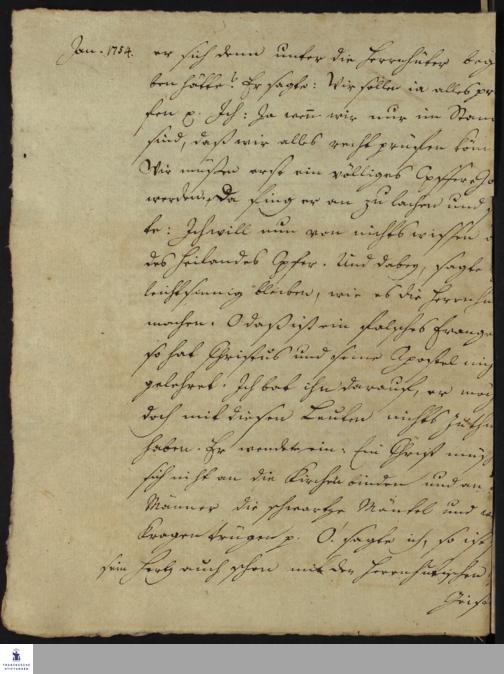 Jan. 1754. er sich denn unter die Herrnhüter beg
ben hätte? Er sagte: Wir sollen ia alles prü
fen p. Ich: Ja wenn wir nur im Stan
sind, daß wir alles recht prüfen kön
Wir müßen erst ein völliges Opffer
werden. Da fing er an zu lachen und
te: Ich will nun von nichts wissen
des Heilandes Opfer. Und dabey, sagte
leichtsinnig bleiben, wie es die Herrnhu
machen. O das ist ein falsches Evange
so hat Christus und seine Apostel nich
gelehret. Ich bat ihn darauf, er möc
doch mit diesen Leuten nichts zu thu
haben. Er wendete ein: Ein Christ müß
sich nicht an die Kirchen binden und an
Männer die schwartze Mäntel und
Kragen trügen p. O! sagte ich, so ist
sein Hertz auch schon mit der Herrnhutischen
FRANCKESCHE
STIFTUNGEN